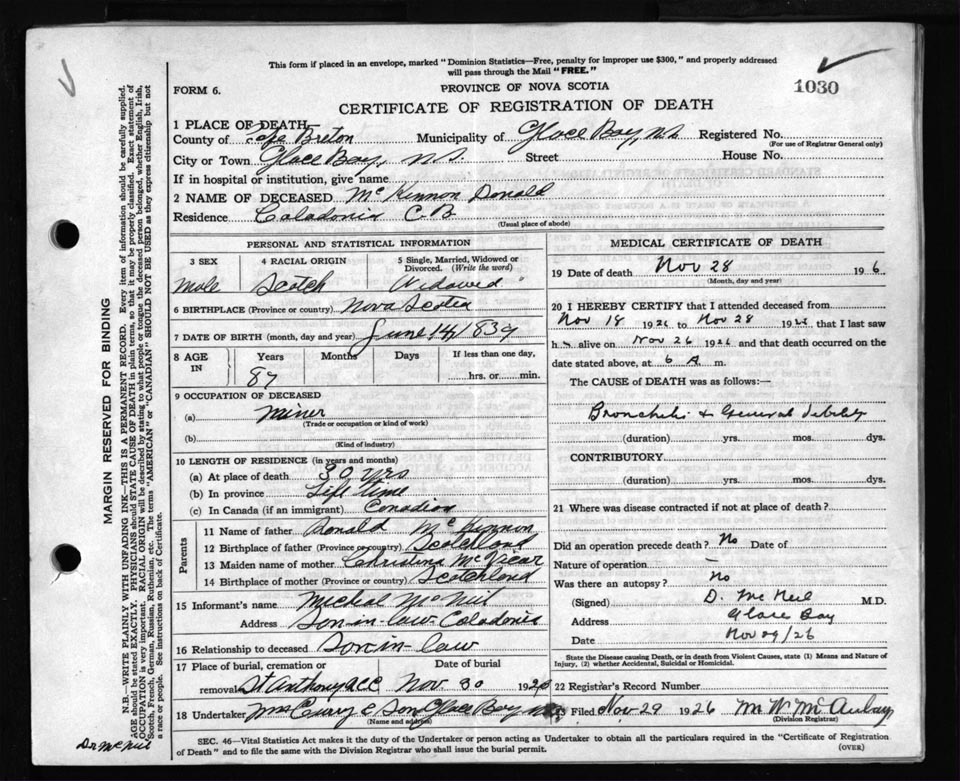 This form if placed in an envelope, marked "Dominion Statistics—Free, penalty for improper use $300," and properly addressed
will pass through the Mail "FREE."
FORM 6. PROVINCE OF NOVA SCOTIA 1030
CERTIFICATE OF REGISTRATION OF DEATH
1 PLACE OF DEATH—
County of Cape Breton Municipality of Glace Bay, N.S. Registered No.
(For use of Registrar General only)
City or Town Glace Bay, N.S. Street House No.
If in hospital or institution, give name
2 NAME OF DECEASED McKinnon Donald
Residence Caladonia C.B.
(Usual place of abode)
PERSONAL AND STATISTICAL INFORMATION
3 SEX 4 RACIAL ORIGIN 5 Single, Married, Widowed or Divorced. (Write the word)
Male Scotch Widowed
6 BIRTHPLACE (Province or country) Nova Scotia
7 DATE OF BIRTH (month, day and year) June 14/1839
8 AGE IN Years Months Days If less than one day,
87 hrs. or min.
9 OCCUPATION OF DECEASED
(a) Miner
(Trade or occupation or kind of work)
(b)
(Kind of industry)
10 LENGTH OF RESIDENCE (in years and months)
(a) At place of death 30 yrs
(b) In province Life time
(c) In Canada (if an immigrant) Canadian
Parents
11 Name of father Donald McKinnon
12 Birthplace of father (Province or country) Scotchland
13 Maiden name of mother Christina
14 Birthplace of mother (Province or country) Scotchland
15 Informant's name Micheal McNeil
Address Son-in-law Caladonia
16 Relationship to deceased Son-in-law
17 Place of burial, cremation or Date of burial
removal St Anthony Nov 30 1926
18 Undertaker Curry & Son Glace Bay
(Name and address)
MEDICAL CERTIFICATE OF DEATH
19 Date of death Nov 28 19 6
(Month, day and year)
20 I HEREBY CERTIFY that I attended deceased from
Nov 18 1926 to Nov 28 1926 that I last saw
h alive on Nov 26 1926 and that death occurred on the
date stated above, at 6 A m.
The CAUSE of DEATH was as follows:—
Bronchitis & General debility
(duration) yrs. mos. dys.
CONTRIBUTORY
(duration) yrs. mos. dys.
21 Where was disease contracted if not at place of death?
Did an operation precede death? No Date of
Nature of operation —
Was there an autopsy? No
(Signed) D. McNeil M.D.
Address Glace Bay
Date Nov 29/26
State the Disease causing Death, or in death from Violent Causes, state (1) Means and Nature of
Injury, (2) whether Accidental, Suicidal or Homicidal.
22 Registrar's Record Number
Filed Nov-29 1926 M. W. McAulay
(Division Registrar)
SEC. 46—Vital Statistics Act makes it the duty of the Undertaker or person acting as Undertaker to obtain all the particulars required in the "Certificate of Registration
of Death" and to file the same with the Division Registrar who shall issue the burial permit. (OVER)
MARGIN RESERVED FOR BINDING
N.B.—WRITE PLAINLY WITH UNFADING INK—THIS IS A PERMANENT RECORD. Every item of information should be carefully supplied.
AGE should be stated EXACTLY. PHYSICIANS should STATE CAUSE OF DEATH in plain terms, so that it may be properly classified. Exact statement of
OCCUPATION is very important. RACIAL ORIGIN will be described by stating to what people or tongue the deceased person belonged, whether English, Irish,
Scotch, French, German, Russian, Ruthenian, etc. The terms "AMERICAN" or "CANADIAN" SHOULD NOT BE USED as they express citizenship but not
a race or people. See instructions on back of Certificate.
Dr McNeil